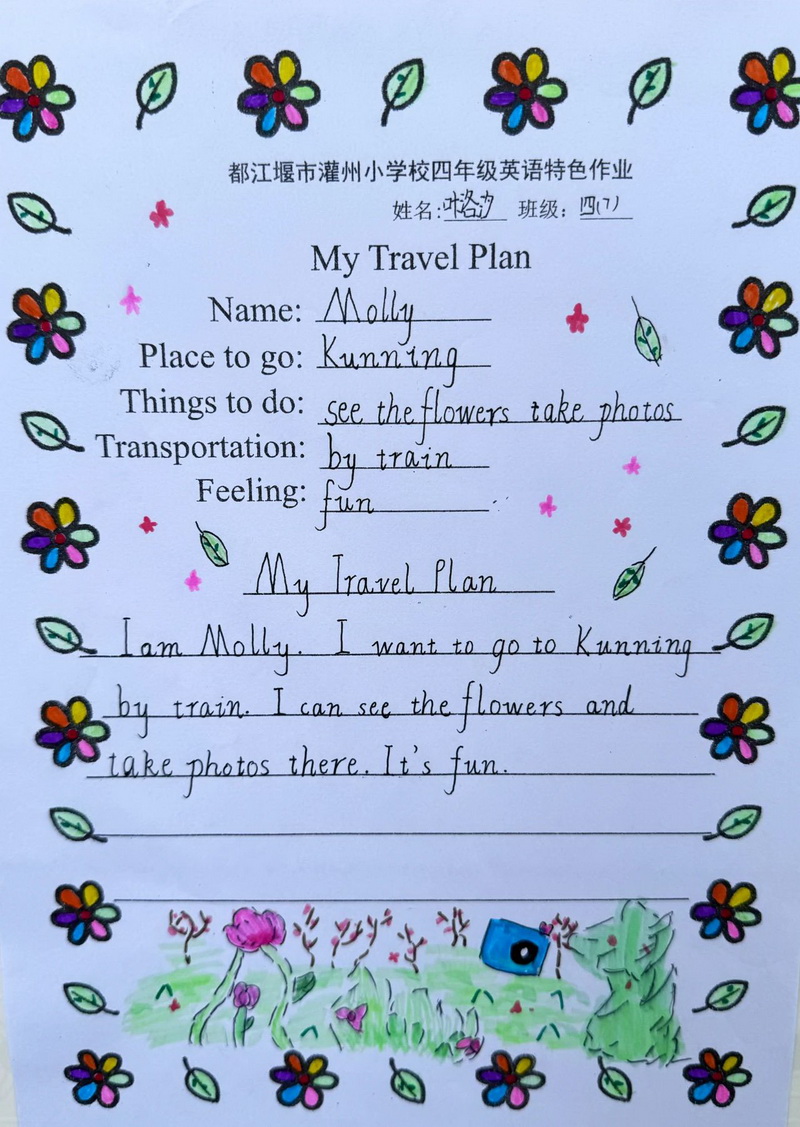 都江堰市灌州小学校四年级英语特色作业
姓名:叶洛汐 班级:四(7)
My Travel Plan
Name: Molly
Place to go: Kunning
Things to do: see the flowers take photos
Transportation: by train
Feeling: fun
My Travel Plan
I am Molly. I want to go to Kunning
by train. I can see the flowers and
take photos there. It's fun.